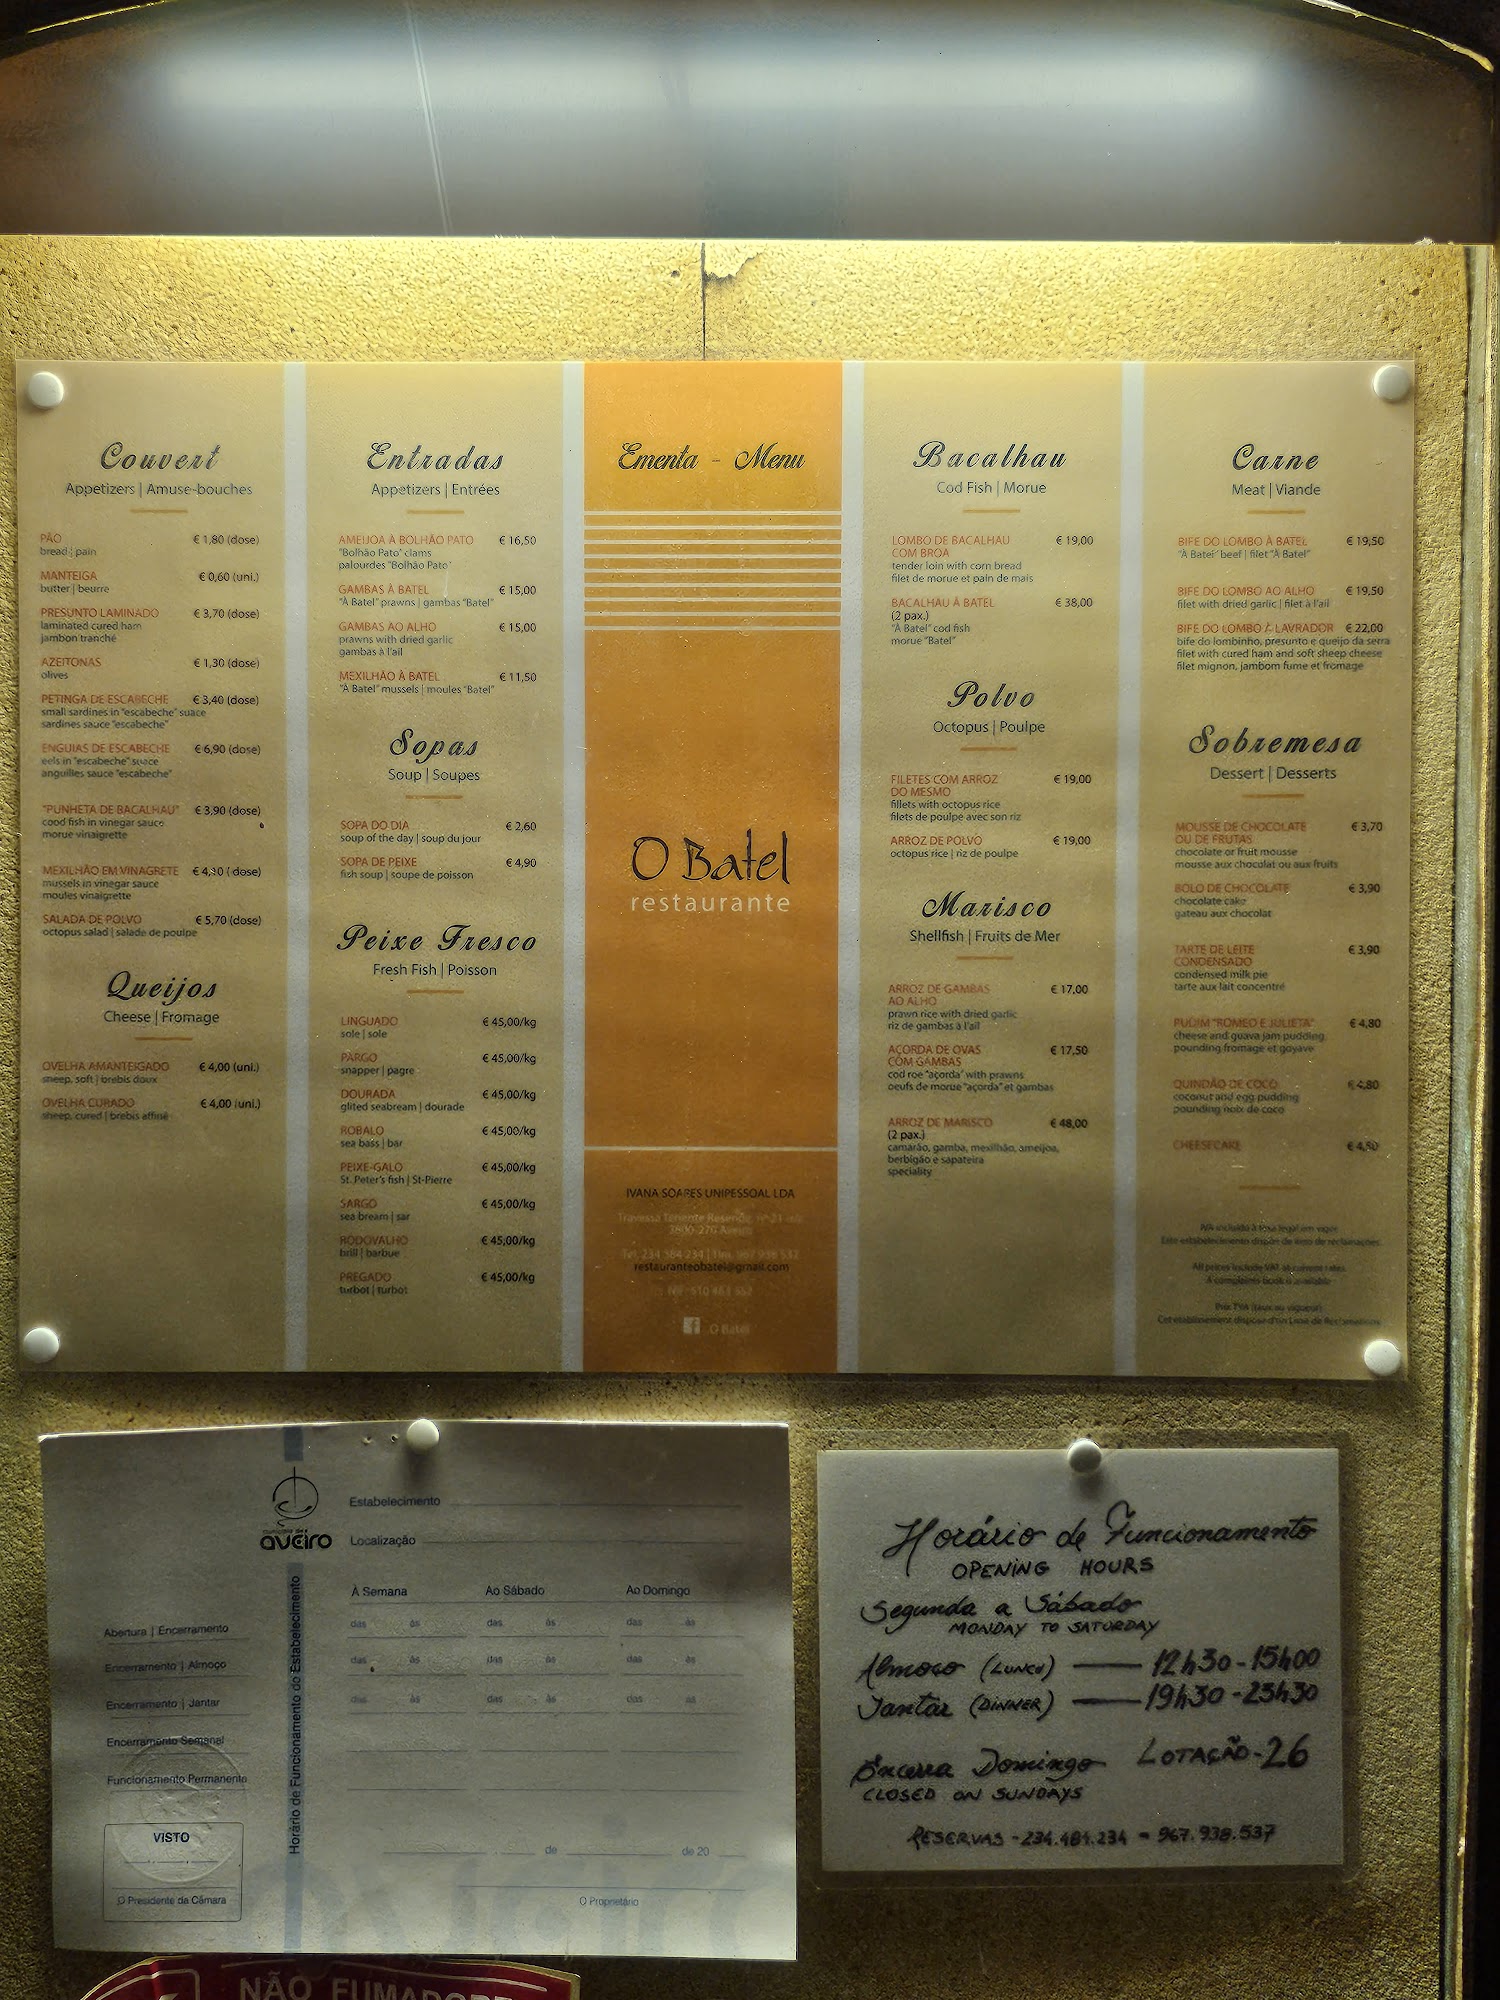 Couvert
Appetizers | Amuse-bouches
PÃO € 1,80 (dose)
bread | pain
MANTEIGA € 0,60 (uni.)
butter | beurre
PRESUNTO LAMINADO € 3,70 (dose)
laminated cured ham
jambon tranché
AZEITONAS € 1,30 (dose)
olives
PETINGA DE ESCABECHE € 3,40 (dose)
small sardines in "escabeche" suace
sardines sauce "escabeche"
ENGUIAS DE ESCABECHE € 6,90 (dose)
eels in "escabeche" suace
anguilles sauce "escabeche"
"PUNHETA DE BACALHAU" € 3,90 (dose)
cood fish in vinegar sauce
morue vinaigrette
MEXILHÃO EM VINAGRETE (dose)
mussels in vinegar sauce
moules vinaigrette
SALADA DE POLVO € 5,70 (dose)
octopus salad | salade de poulpe
Queijos
Cheese | Fromage
OVELHA AMANTEIGADO € 4,00 (uni.)
sheep, soft | brebis doux
OVELHA CURADO € 4,00 (uni.)
sheep, cured | brebis affiné
Entradas
Appetizers | Entrées
AMEIJOA À BOLHÃO PATO € 16,50
"Bolhão Pato" clams
palourdes "Bolhão Pato"
GAMBAS À BATEL € 15,00
"À Batel" prawns | gambas "Batel"
GAMBAS AO ALHO € 15,00
prawns with dried garlic
gambas à l'ail
MEXILHÃO À BATEL € 11,50
"À Batel" mussels | moules "Batel"
Sopas
Soup | Soupes
SOPA DO DIA € 2,60
soup of the day | soup du jour
SOPA DE PEIXE € 4,90
fish soup | soupe de poisson
Peixe Fresco
Fresh Fish | Poisson
LINGUADO € 45,00/kg
sole | sole
PARGO € 45,00/kg
snapper | pagre
DOURADA € 45,00/kg
glited seabream | dourade
ROBALO € 45,00/kg
sea bass | bar
PEIXE-GALO € 45,00/kg
St. Peter's fish | St-Pierre
SARGO € 45,00/kg
sea bream | sar
RODOVALHO € 45,00/kg
brill | barbue
PREGADO € 45,00/kg
turbot | turbot
Ementa - Menu
O Batel
restaurante
IVANA SOARES UNIPESSOAL LDA
Travessa Tenente Resende, nº 21
3800-270 Aveiro
restauranteobatel@gmail.com
O Batel
Bacalhau
Cod Fish | Morue
LOMBO DE BACALHAU € 19,00
COM BROA
tender loin with corn bread
filet de morue et pain de mais
BACALHAU À BATEL € 38,00
(2 pax.)
"À Batel" cod fish
morue "Batel"
Polvo
Octopus | Poulpe
FILETES COM ARROZ € 19,00
DO MESMO
fillets with octopus rice
filets de poulpe avec son riz
ARROZ DE POLVO € 19,00
octopus rice | riz de poulpe
Marisco
Shellfish | Fruits de Mer
ARROZ DE GAMBAS € 17,00
AO ALHO
prawn rice with dried garlic
riz de gambas à l'ail
AÇORDA DE OVAS € 17,50
COM GAMBAS
cod roe "açorda" with prawns
oeufs de morue "açorda" et gambas
ARROZ DE MARISCO € 48,00
(2 pax.)
camarão, gamba, mexilhão, ameijoa,
berbigão e sapateira
speciality
Carne
Meat | Viande
BIFE DO LOMBO À BATEL € 19,50
"À Batel" beef | filet "À Batel"
BIFE DO LOMBO AO ALHO € 19,50
filet with dried garlic | filet à l'ail
BIFE DO LOMBO À LAVRADOR € 22,00
bife do lombinho, presunto e queijo da serra
filet with cured ham and soft sheep cheese
filet mignon, jambom fume et fromage
Sobremesa
Dessert | Desserts
MOUSSE DE CHOCOLATE € 3,70
OU DE FRUTAS
chocolate or fruit mousse
mousse aux chocolat ou aux fruits
BOLO DE CHOCOLATE € 3,90
chocolate cake
gateau aux chocolat
TARTE DE LEITE € 3,90
CONDENSADO
condensed milk pie
tarte aux lait concentré
PUDIM "ROMEO E JULIETA" € 4,80
cheese and guava jam pudding
pounding fromage et goyave
QUINDÃO DE COCO € 4,80
coconut and egg pudding
pounding noix de coco
CHEESECAKE € 4,50
IVA incluído à taxa legal em vigor
Este estabelecimento dispõe de livro de reclamações
All prices include VAT at current rates
A complaints book is available
Prix TVA (taux en vigueur)
Cet établissement dispose d'un Livre de Réclamations
aveiro
Estabelecimento
Localização
À Semana Ao Sábado Ao Domingo
Abertura | Encerramento das às das às das às
Encerramento | Almoço das às das às das às
Encerramento | Jantar das às das às das às
Encerramento Semanal
Funcionamento Permanente
Horário de Funcionamento do Estabelecimento
VISTO
O Presidente da Câmara
de de 20
O Proprietário
Horário de Funcionamento
OPENING HOURS
Segunda a Sábado
MONDAY TO SATURDAY
Almoço (LUNCH) — 12h30 - 15h00
Jantar (DINNER) — 19h30 - 23h30
Encerra Domingo LOTAÇÃO - 26
CLOSED ON SUNDAYS
RESERVAS - 234.484.234 = 967.938.537
NÃO FUMADORES